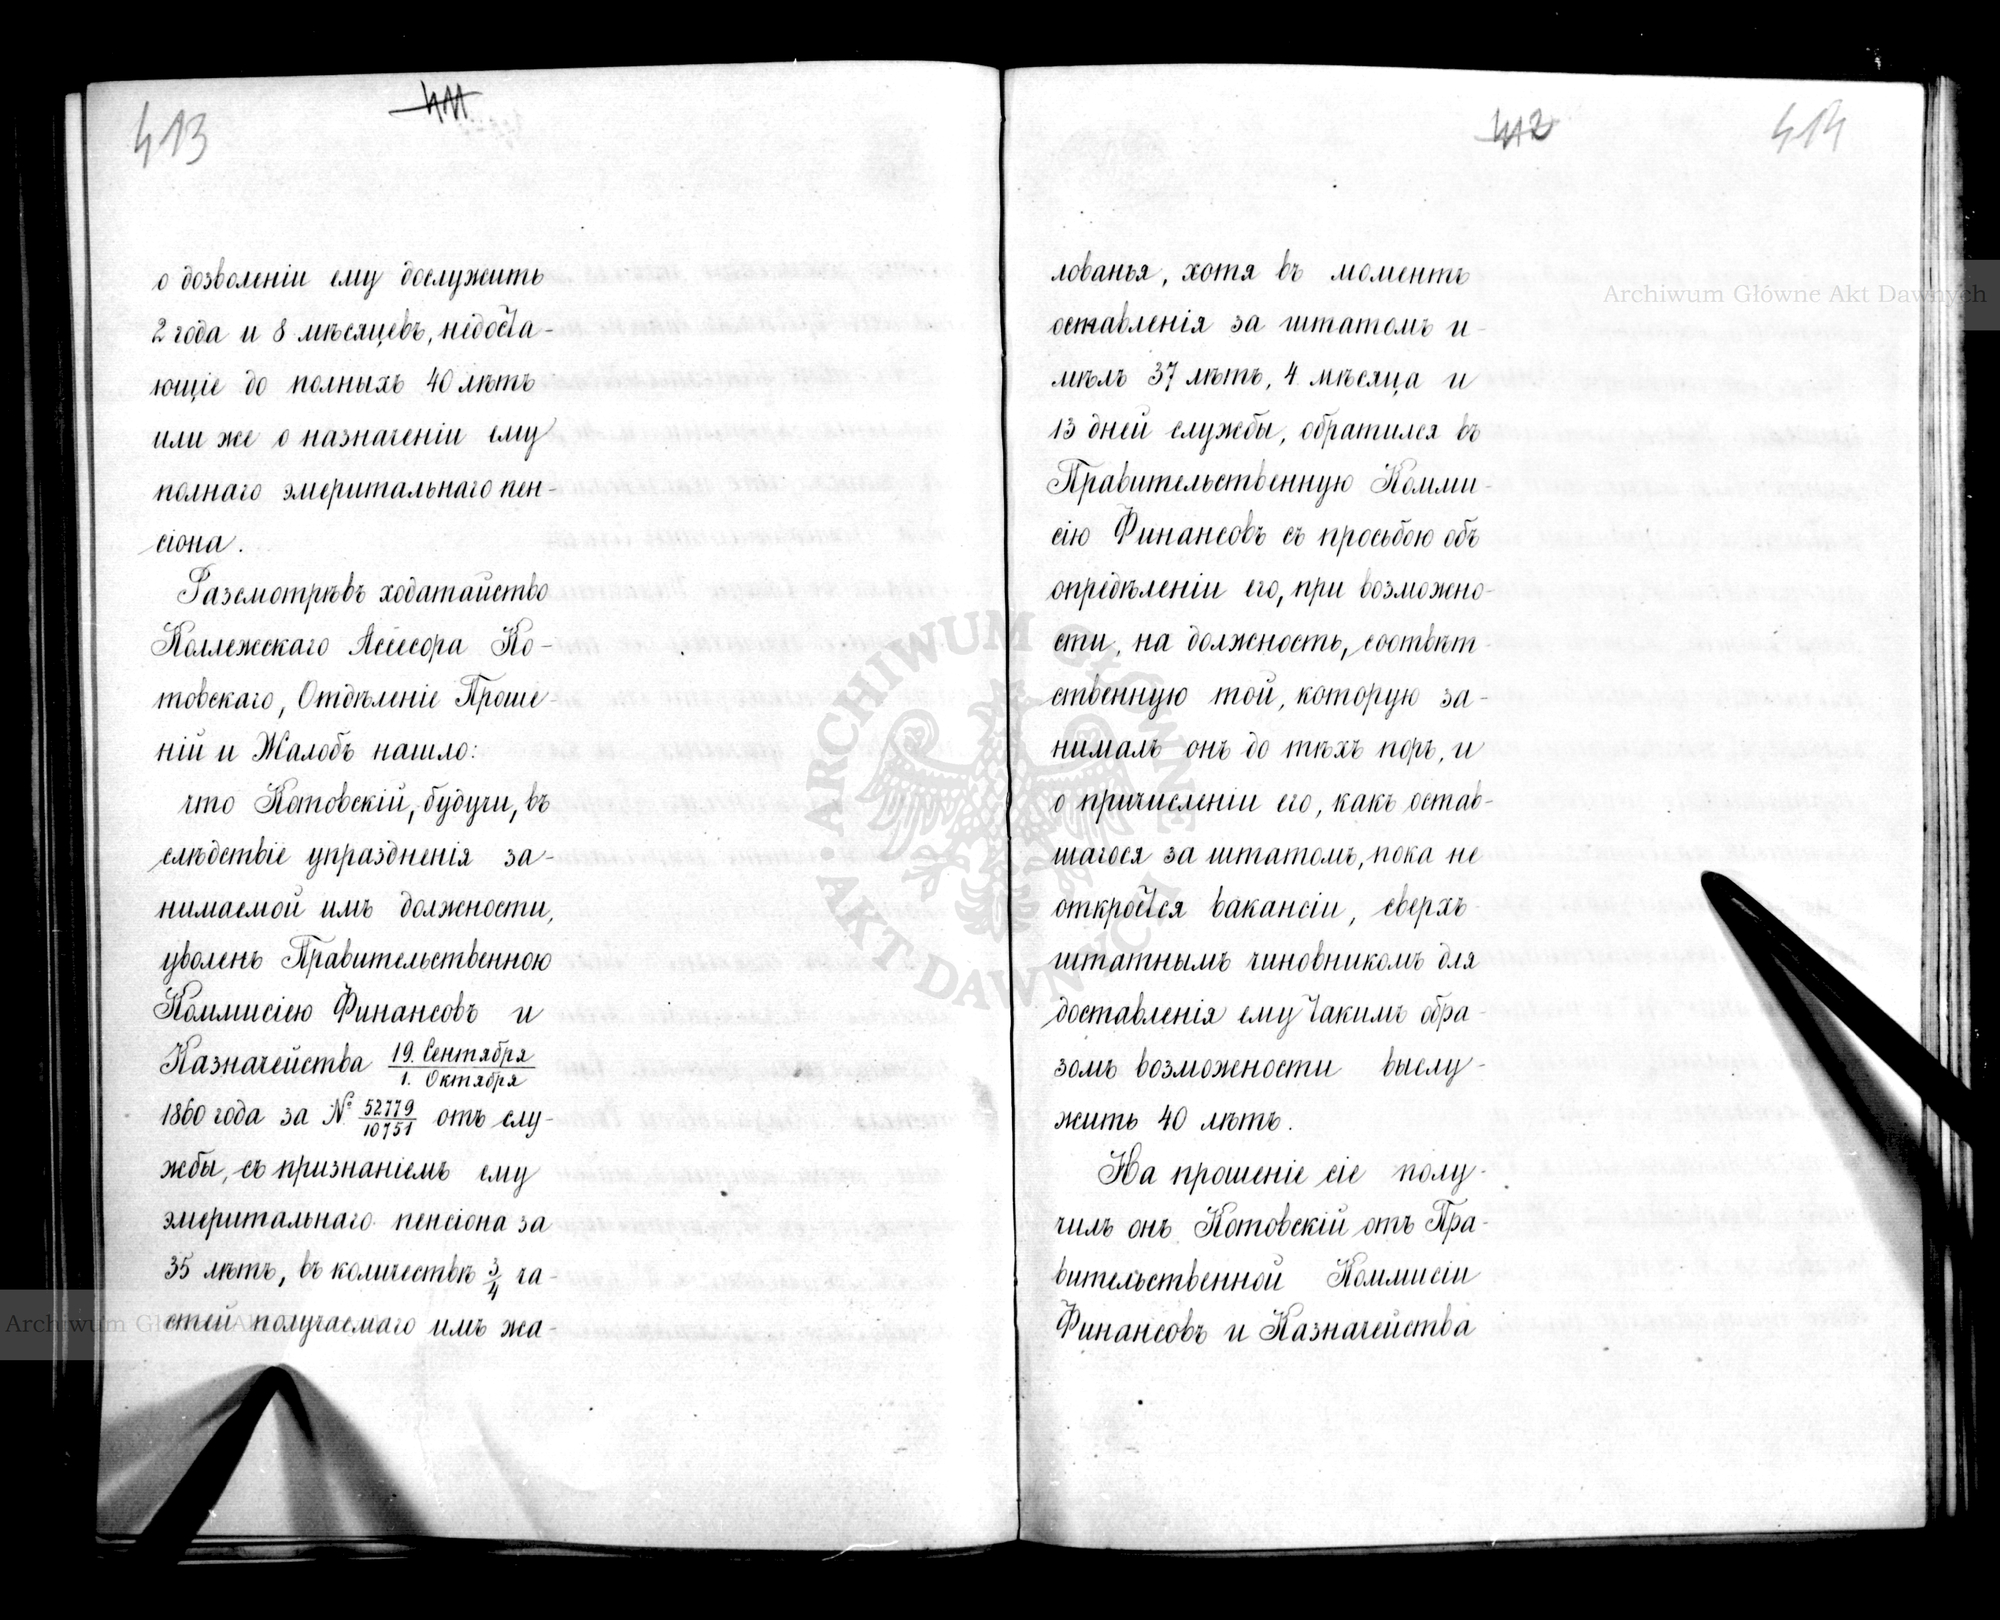 413
411
о дозволеніи ему дослужить
2 года и 8 мѣсяцевъ, недоста-
ющіе до полныхъ 40 лѣтъ
или же о назначеніи ему
полнаго эмеритальнаго пен-
сіона.
Разсмотрѣвъ ходатайство
Коллежскаго Ассесора Ко-
товскаго, Отдѣленіе Проше-
ній и Жалобъ нашло:
что Котовскій, будучи, въ
слѣдствіе упраздненія за-
нимаемой имъ должности,
уволенъ Правительственною
Коммисіею Финансовъ и
Казначейства 19. Сентября / 1. Октября
1860 года за № 52779 / 10751 отъ слу-
жбы, съ признаніемъ ему
эмеритальнаго пенсіона за
35 лѣтъ, въ количествѣ 3/4 ча-
стей получаемаго имъ жа-
412
414
лованья, хотя въ моментъ
оставленія за штатомъ и-
мѣлъ 37 лѣтъ, 4 мѣсяца и
13 дней службы, обратился въ
Правительственную Комми-
сію Финансовъ съ просьбою объ
опредѣленіи его, при возможно-
сти, на должность, соотвѣт-
ственную той, которую за-
нималъ онъ до тѣхъ поръ, и
о причисленіи его, какъ остав-
шагося за штатомъ, пока не
откроется вакансіи, сверхъ-
штатнымъ чиновникомъ для
доставленія ему такимъ обра-
зомъ возможности выслу-
жить 40 лѣтъ.
На прошеніе сіе полу-
чилъ онъ Котовскій отъ Пра-
вительственной Коммисіи
Финансовъ и Казначейства
Archiwum Główne Akt Dawnych
Archiwum Główne Akt Dawnych
ARCHIWUM GŁÓWNE AKT DAWNYCH